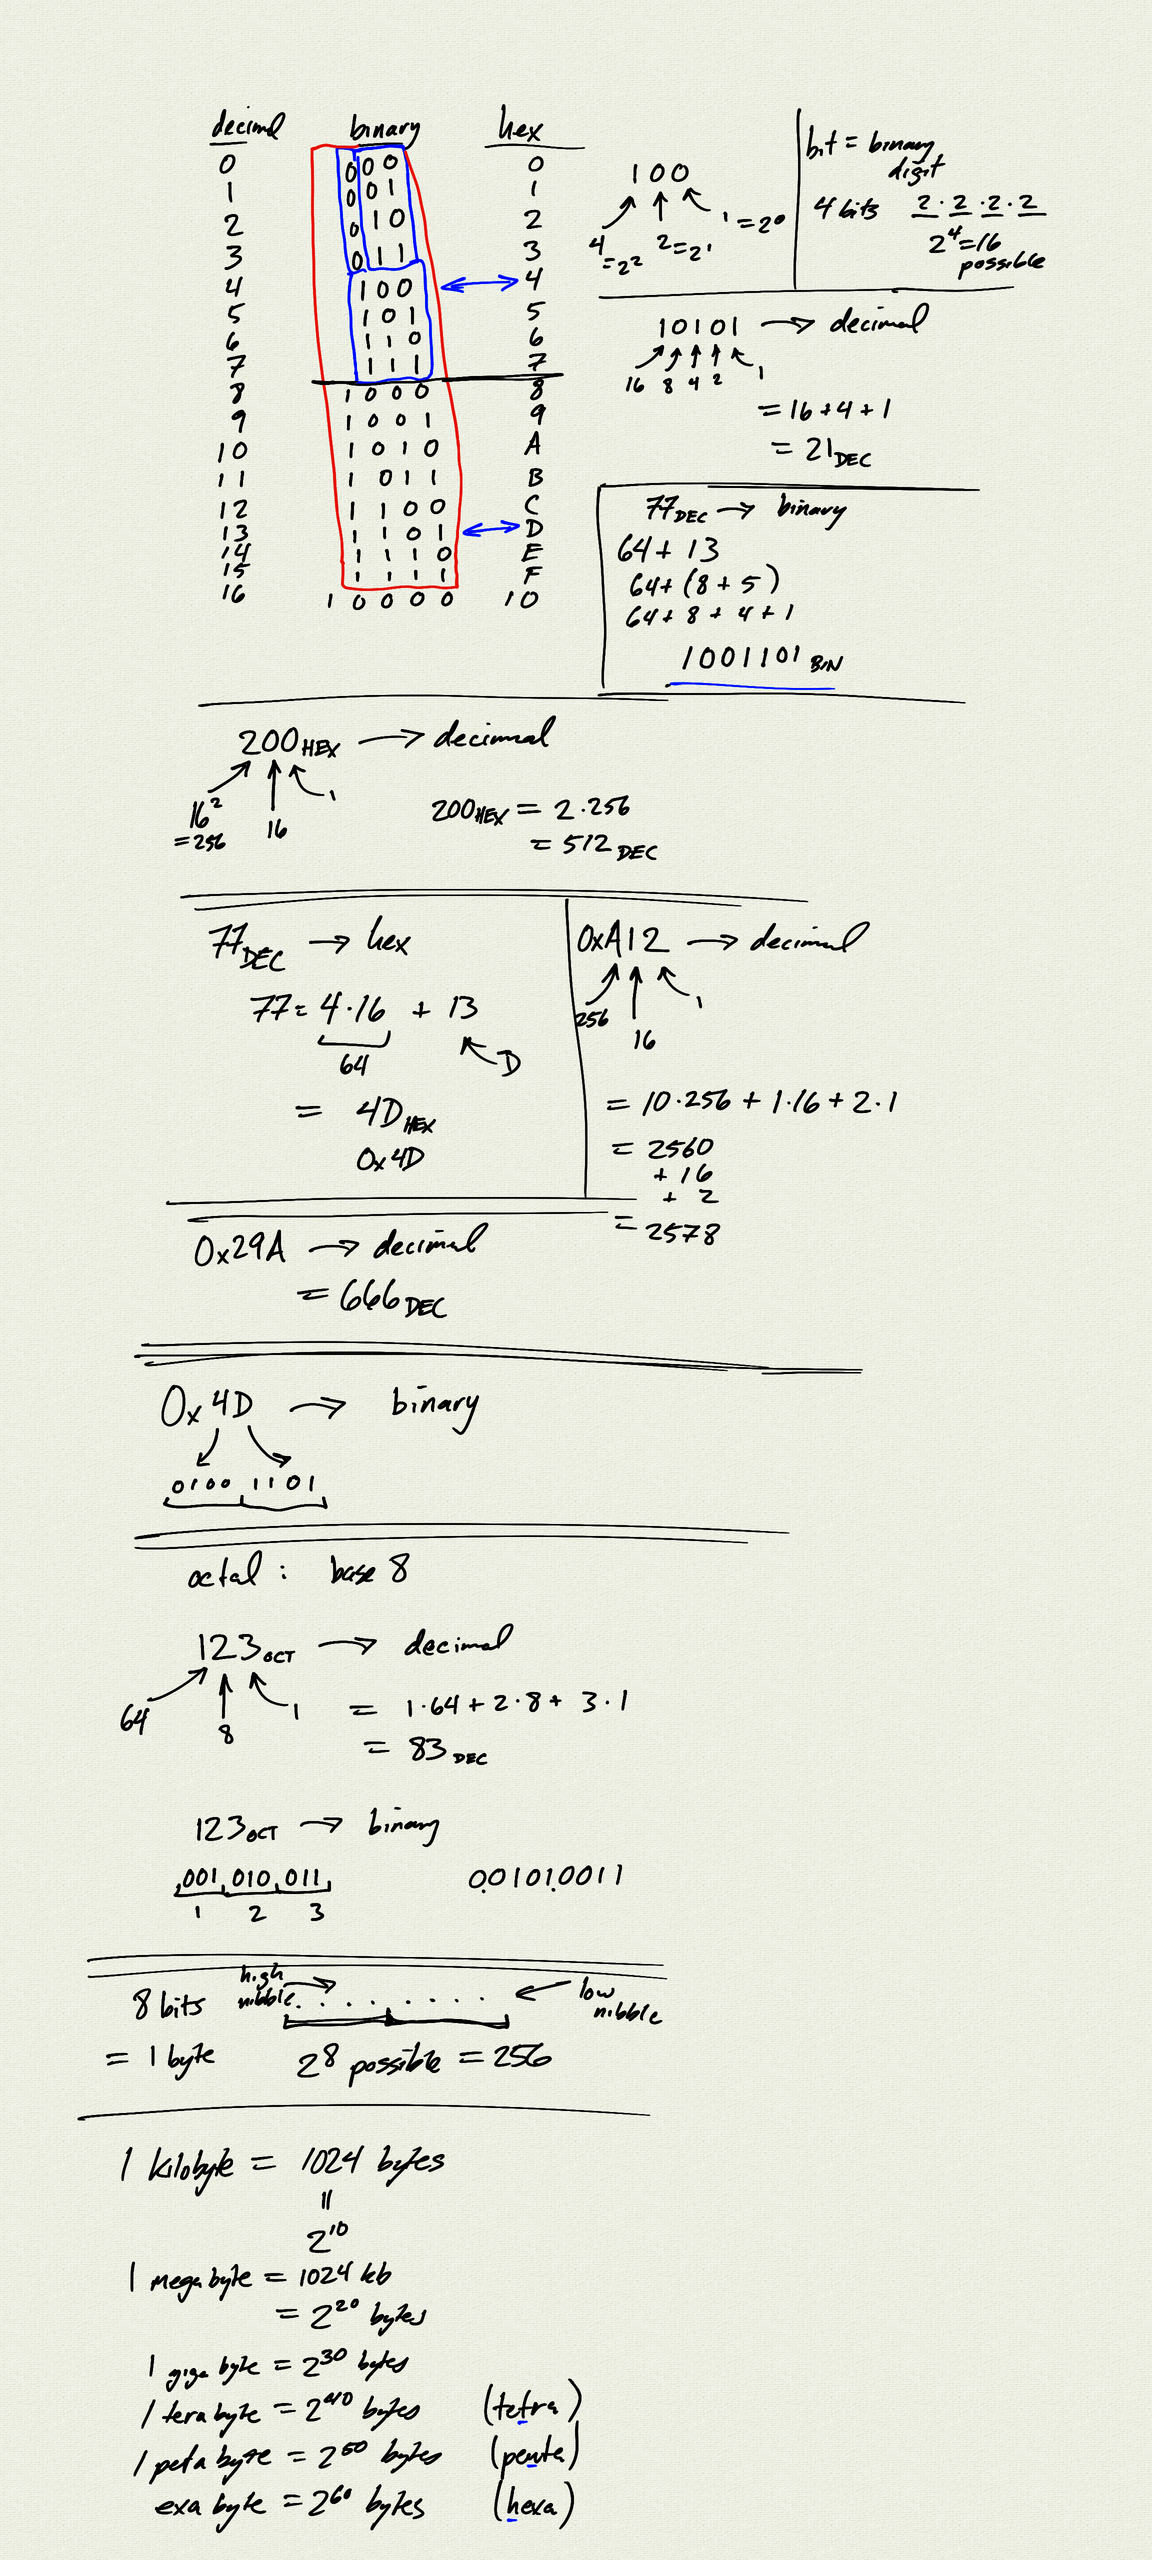 decimal binary hex
0 000 0
1 001 1
2 010 2
3 011 3
4 100 4
5 101 5
6 110 6
7 111 7
8 1000 8
9 1001 9
10 1010 A
11 1011 B
12 1100 C
13 1101 D
14 1110 E
15 1111 F
16 10000 10
100
4 = 2² 2 = 2¹ 1 = 2⁰
bit = binary
digit
4 bits 2 · 2 · 2 · 2
2⁴ = 16
possible
10101 → decimal
16 8 4 2 1
= 16 + 4 + 1
= 21 DEC
77 DEC → binary
64 + 13
64 + (8 + 5)
64 + 8 + 4 + 1
1001101 BIN
200 HEX → decimal
16² 16 1
= 256
200 HEX = 2 · 256
= 512 DEC
77 DEC → hex
77 = 4 · 16 + 13
64 D
= 4D HEX
0x4D
0xA12 → decimal
256 16 1
= 10 · 256 + 1 · 16 + 2 · 1
= 2560
+ 16
+ 2
= 2578
0x29A → decimal
= 666 DEC
0x4D → binary
0100 1101
octal : base 8
123 OCT → decimal
64 8 1
= 1 · 64 + 2 · 8 + 3 · 1
= 83 DEC
123 OCT → binary
001 010 011 001010011
1 2 3
8 bits high nibble . . . . . . . . low nibble
= 1 byte 2⁸ possible = 256
1 kilobyte = 1024 bytes
=
2¹⁰
1 megabyte = 1024 kb
= 2²⁰ bytes
1 giga byte = 2³⁰ bytes
1 tera byte = 2⁴⁰ bytes (tetra)
1 peta byte = 2⁵⁰ bytes (penta)
exa byte = 2⁶⁰ bytes (hexa)